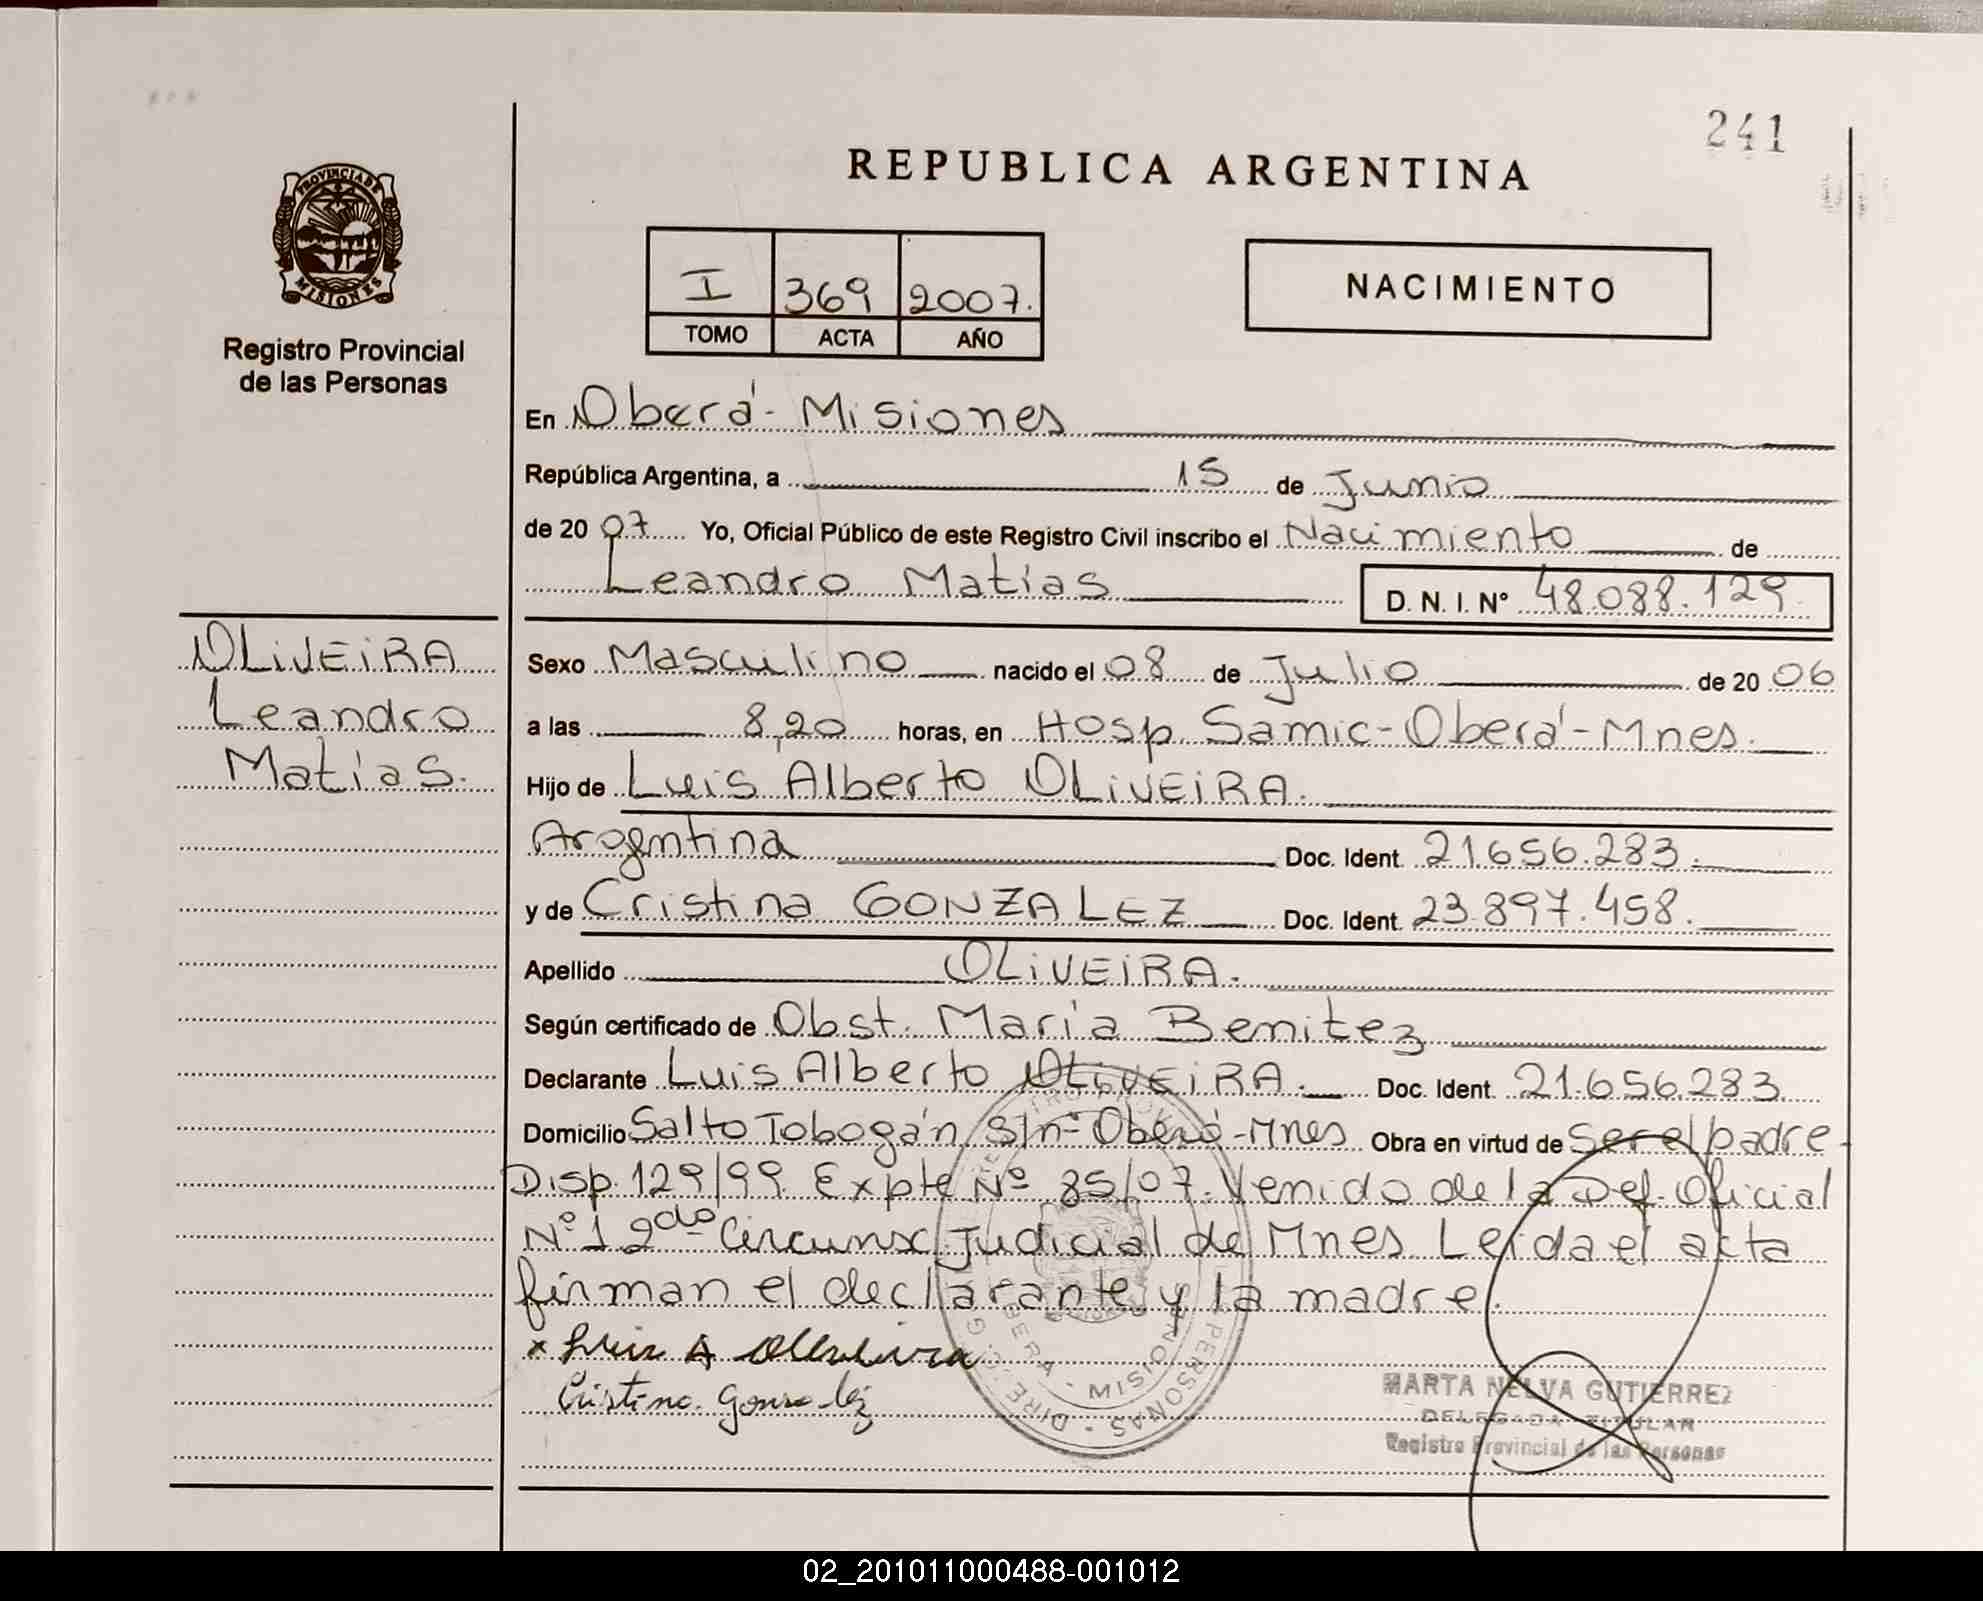 241
REPUBLICA ARGENTINA
PROVINCIA DE
MISIONES
Registro Provincial
de las Personas
I 369 2007.
TOMO ACTA AÑO
NACIMIENTO
En Oberá - Misiones
República Argentina, a 15 de Junio
de 20 07 Yo, Oficial Público de este Registro Civil inscribo el Nacimiento de
Leandro Matías D. N. I. Nº 48.088.129.
OLIVEIRA
Leandro
Matías.
Sexo Masculino nacido el 08 de Julio de 20 06
a las 8,20 horas, en Hosp. Samic-Oberá-Mnes.
Hijo de Luis Alberto OLIVEIRA.
Argentina Doc. Ident. 21.656.283.
y de Cristina GONZALEZ Doc. Ident. 23.897.458.
Apellido OLIVEIRA.
Según certificado de Obst. María Benitez
Declarante Luis Alberto OLIVEIRA. Doc. Ident. 21.656.283.
Domicilio Salto Tobogán S/nº Oberá-Mnes. Obra en virtud de Ser el padre-
Disp. 129/99. Expte Nº 85/07. Venido de la Def. Oficial
Nº 1 2da Circunsc. Judicial de Mnes Leida el acta
firman el declarante y la madre.
x Luis A Oliveira
Cristina Gonzalez
OBERA - MISIONES
MARTA NELVA GUTIERREZ
DELEGADA TITULAR
Registro Provincial de las Personas
02_201011000488-001012